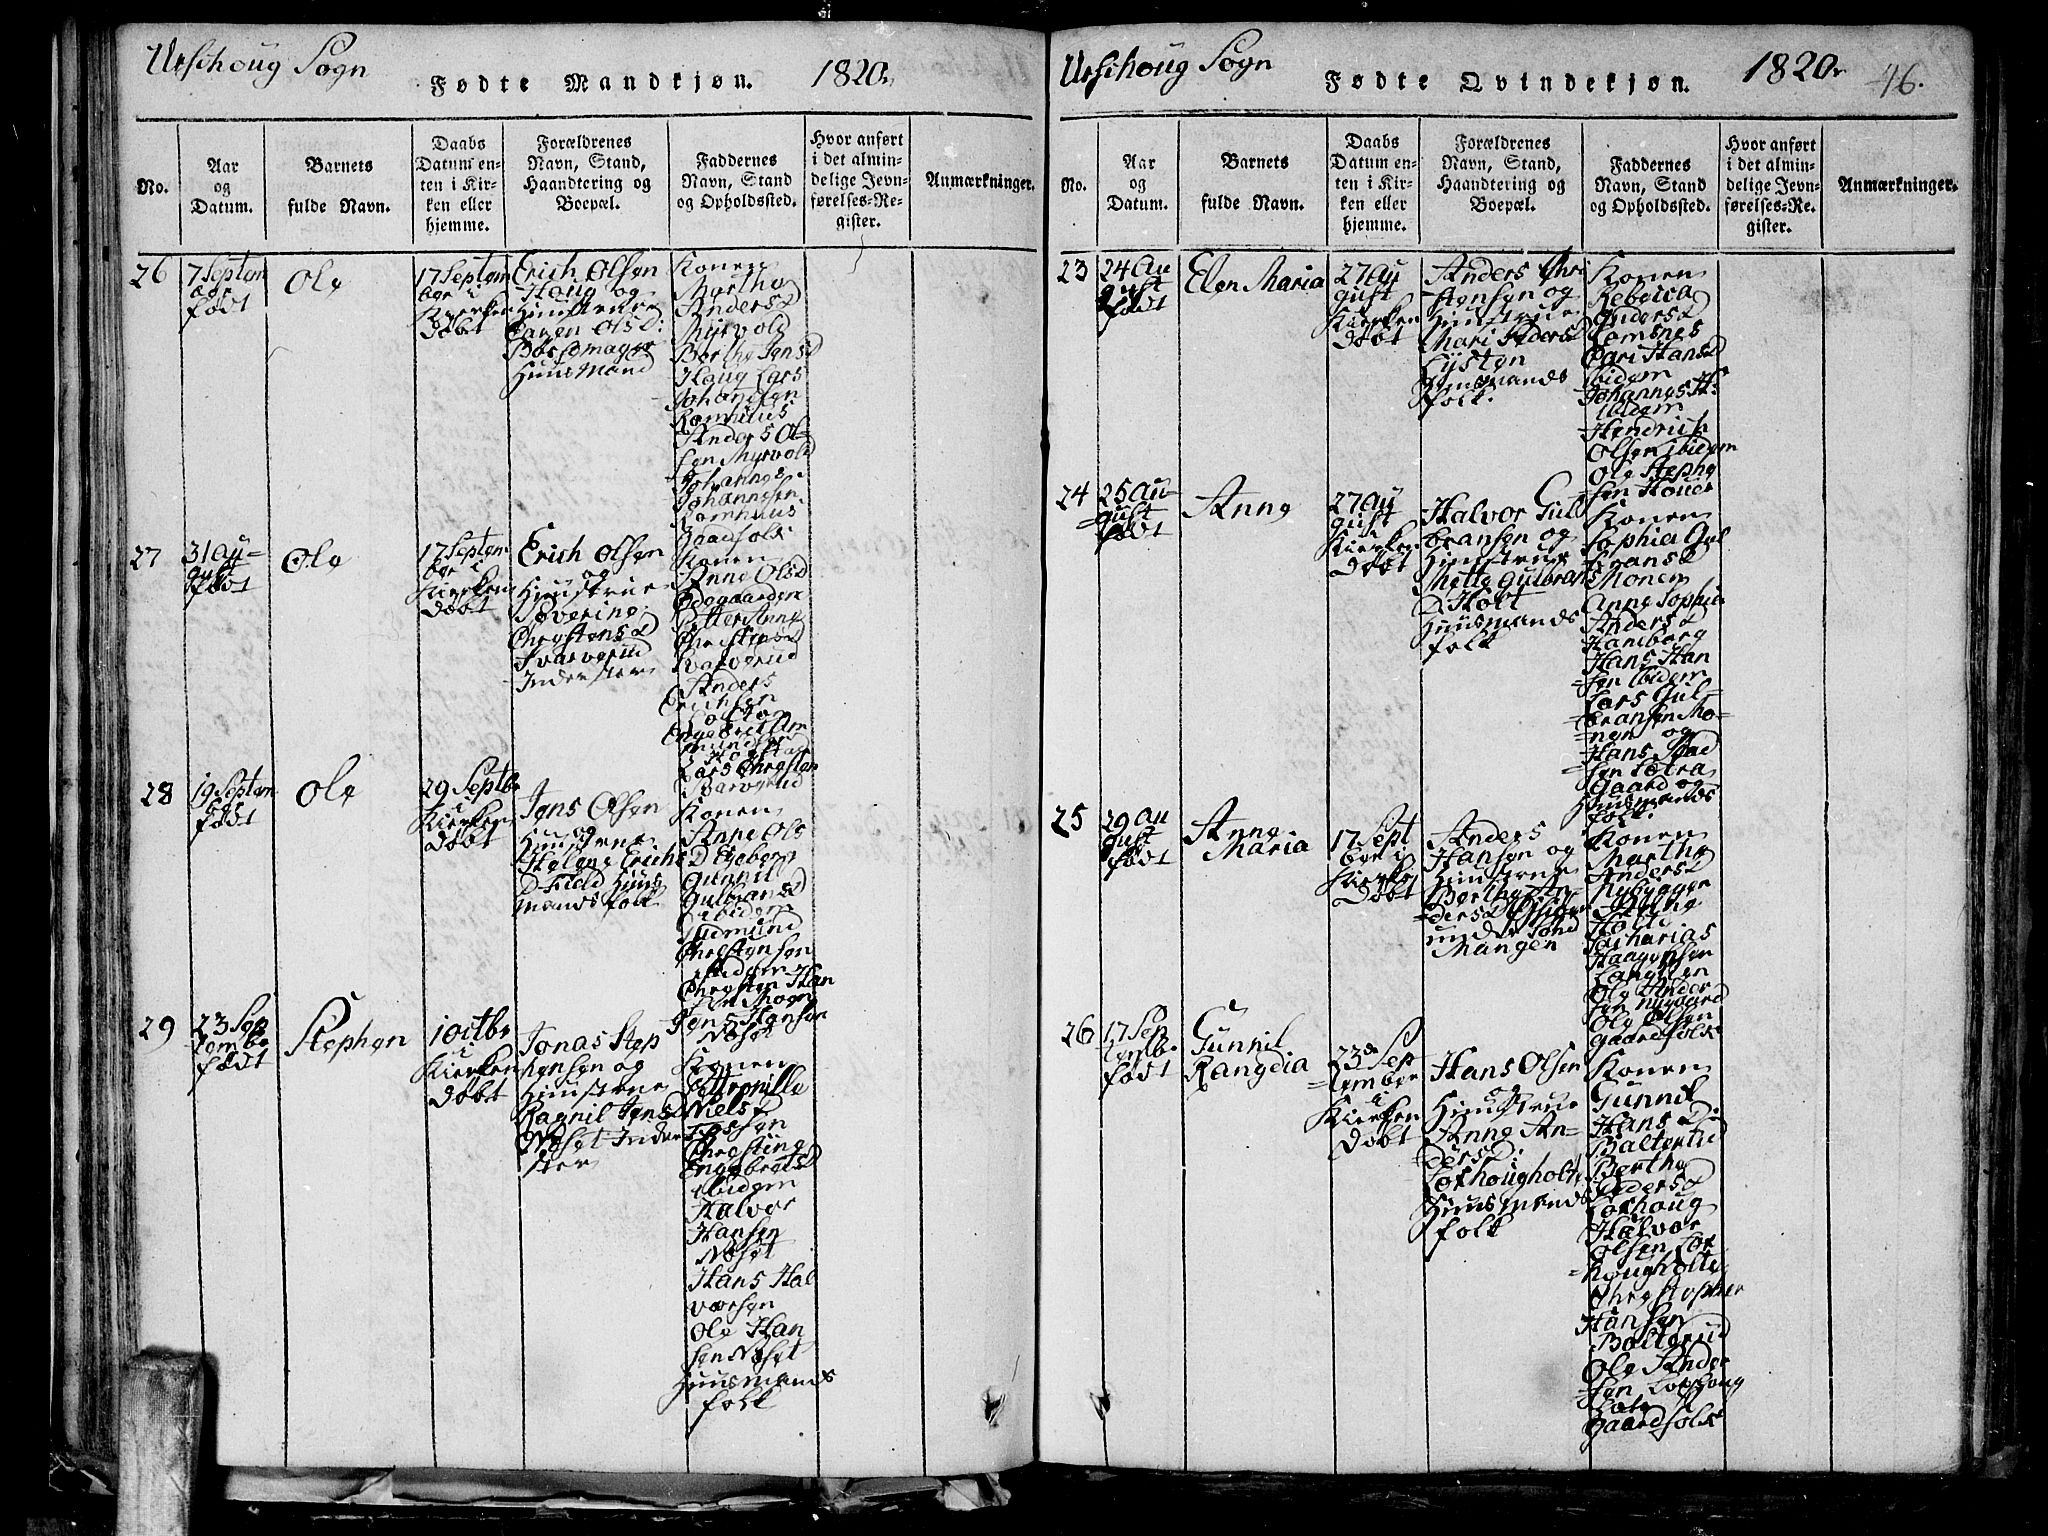 Urschoug Sogn
Fødte Mandkjøn.
1820.
No.
Aar
og
Datum.
Barnets
fulde Navn.
Daabs
Datum en-
ten i Kir-
ken eller
hjemme.
Forældrenes
Navn, Stand,
Haandtering og
Boepæl.
Faddernes
Navn, Stand
og Opholdssted.
Hvor anført
i det almin-
delige Jevn-
førelses-Re-
gister.
Anmærkninger.
26
7 Septem
ber
født
Ole
17 Septem
ber i
Kierken
døbt
Erich Olsen
Houg og
Hiustrue
Karen Olsd:
Børsemager
Huusmand
Konen
Marthe
Andersd
Myrvold
Berthe Jensd
Houg Lars
Johansen
Romhuus
Anders Ol-
sen Myrvold
Johannes
Johannesen
Romhuus
Gaardfolk
27
31 Au-
gust
født
Ole
17 Septem
ber i
Kierken
døbt
Erich Olsen
og
Hiustrue
Severine
Chrystensd
Svarverud
Inderster
Konen
Anne Olsd
Ødegaarden
Anne
Christensd
Svarverud
Anders
Erichsen
Lars Chrysten
Svarverud
28
19 Septem
ber
født
Ole
29 Septbr
i
Kierken
døbt
Jens Olsen
og
Hiustrue
Helene Erichs
D Field Huus
mandsfolk
Konen
Anne Ols
D Egebern
Gunnil
Gulbransd
ibidem
Gudmund
Chrestensen
ibidem
Chrysten Han
sen Moen
Jens Hansen
Nøset
29
23 Sep
tembr
født
Stephen
1 Octbr
i
Kierken
døbt
Jonas Step
hensen og
Hiustrue
Ragnil Jensd
Nøset Inder
ster
Konen
Petternille
Nielsd
Fossen
Chrestine
Engebretsd
ibidem
Halvor
Hansen
Nøset
Hans Hal
vorsen
Ole Han
sen Nøset
Huusmands
folk
Urschoug Sogn
Fødte Qvindekjøn.
1820.
46.
No.
Aar
og
Datum.
Barnets
fulde Navn.
Daabs
Datum en-
ten i Kir-
ken eller
hjemme.
Forældrenes
Navn, Stand,
Haandtering og
Boepæl.
Faddernes
Navn, Stand
og Opholdssted.
Hvor anført
i det almin-
delige Jevn-
førelses-Re-
gister.
Anmærkninger.
23
24 Au
gust
født
Elen Maria
27 Au
gust
Kierken
døbt
Anders Chri
stensen og
Hiustrue
Mari Pedersd
Lysten
Huusmands
folk.
Konen
Rebecca
Andersd
Romsnes
Kari Hansd
ibidem
Johannes H.
ibidem
Hendrich
Olsen ibidem
Ole Stephe
sen
24
25 Au-
gust
født
Anne
27 Au
gust
i Kierken
døbt
Halvor Gul
bransen og
Hiustrue
Mette Gulbrans
D Holt
Huusmands
folk
Konen
Sophia Gul
bransd
Monem
Anne Sophie
Andersd
Hamborg
Hans Han
sen ibidem
Lars Gul-
bransen Mo-
nem og
Hans
sen
Gaard og
Huusmands
folk.
25
29 Au
gust
født
Anne
Maria
17 Sept
ber i
Kierke
døbt
Anders
Hansen og
Hiustrue
Berthe An-
dersd
under Sønd
Mangen
Konen
Marthe
Andersd
Nybygger
Zacharias
Haagensen
Ole Ander
sen Nygaard
Ole Olsen
Gaardfolk
26
17 Sep
tembr
født
Gunnil
Rangdia
23de Sep
tember
i
Kierken
døbt
Hans Olsen
og
Hiustrue
Anne An-
dersd:
Torhougholt
Huusmands
folk
Konen
Gunnil
Hans D.
Balterud
Berthe
Pedersd
Torhoug
Halvor
Olsen Tor
hougholte
Chrestopher
Hansen
Balterud
Ole Ander
sen Torhoug
Gaardfolk